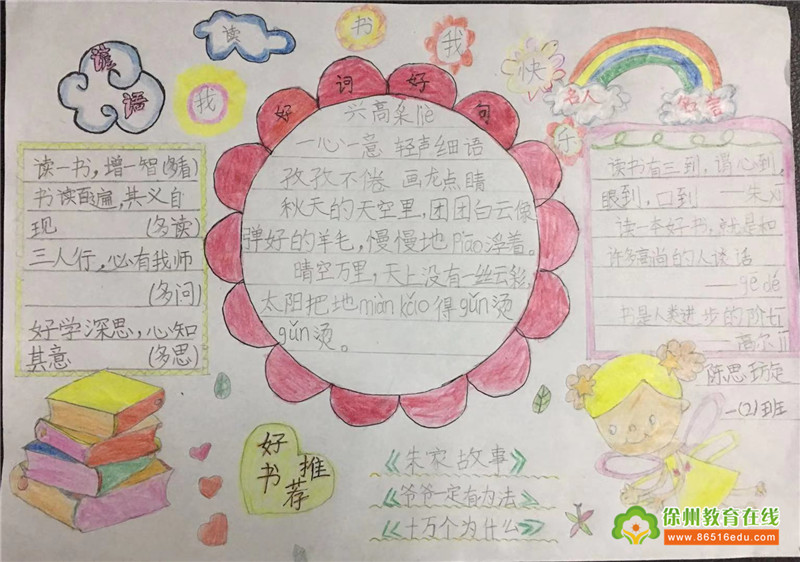 读
书
我
快
乐
我
读
语
名人
名言
好词好句
读一书，增一智(多看)
书读百遍，其义自
现 (多读)
三人行，必有我师
(多问)
好学深思，心知
其意 (多思)
兴高采liè
一心一意 轻声细语
孜孜不倦 画龙点睛
秋天的天空里，团团白云像
弹好的羊毛，慢慢地piāo浮着。
晴空万里，天上没有一丝云彩，
太阳把地miàn kǎo得gǔn烫
gǔn烫。
读书有三到，谓心到，
眼到，口到 ——朱
读一本好书，就是和
许多高尚的人谈话
——gē dé
书是人类进步的阶
——高尔
陈思
一(2)班
好书
推荐
《朱家故事》
《爷爷一定有办法》
《十万个为什么》
徐州教育在线
www.86516edu.com